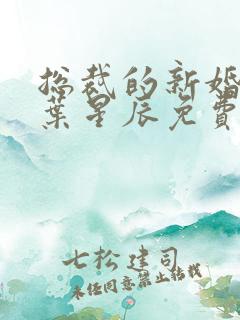 总裁的新婚
葉星辰免费
七松建司
未经同意禁止转载